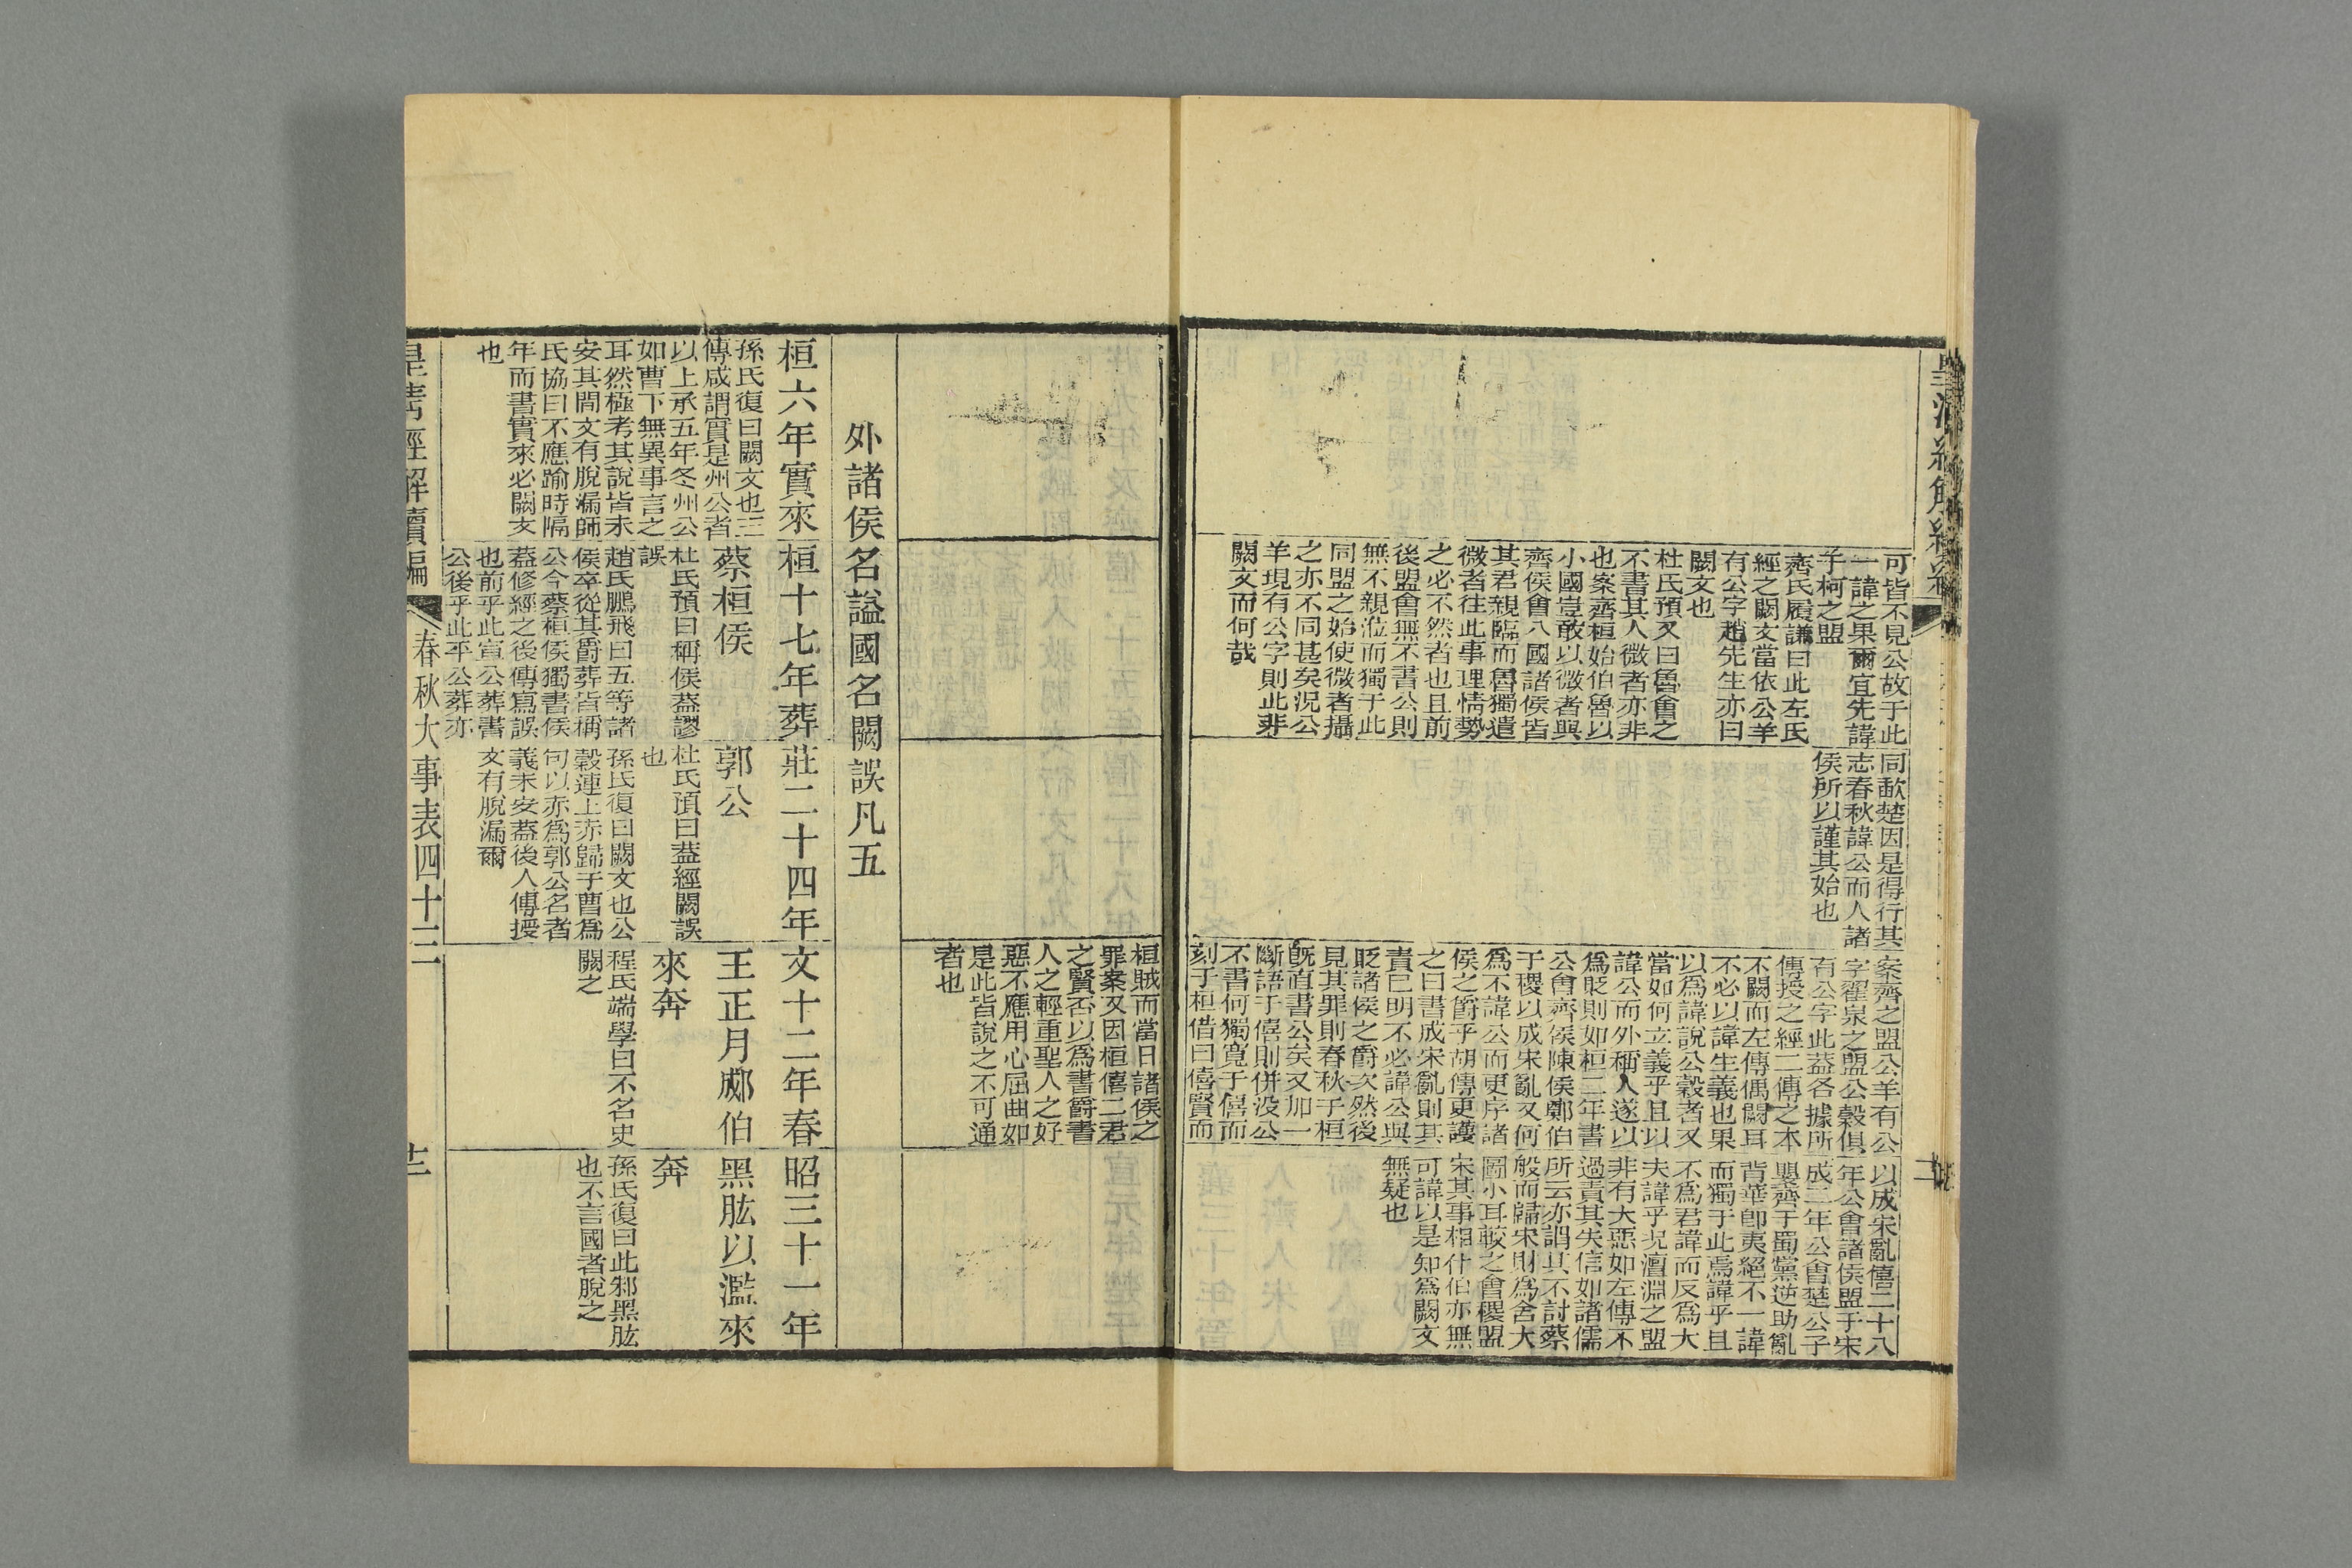 可皆不見公故于此
一諱之果爾宜先諱
子柯之盟
齊氏履謙曰此左氏
經之闕文當依公羊
有公字趙先生亦曰
闕文也
杜氏預又曰魯會之
不書其人微者亦非
也案齊桓始伯魯以
小國豈敢以微者與
齊侯會八國諸侯皆
其君親臨而魯獨遣
微者往此事理情勢
之必不然者也且前
後盟會無不書公則
無不親涖而獨于此
同盟之始使微者攝
之亦不同甚矣況公
羊現有公字則此非
闕文而何哉
同歃楚因是得行其
志春秋諱公而人諸
侯所以謹其始也
案齊之盟公羊有公
字翟泉之盟公穀俱
有公字此蓋各據所
傳授之經二傳之本
不闕而左傳偶闕耳
不必以諱生義也果
以為諱說公穀者又
當如何立義乎且以
諱公而外稱人遂以
為貶則如桓二年書
公會齊侯陳侯鄭伯
于稷以成宋亂又何
為不諱公而更序諸
侯之爵乎胡傳更護
之曰書成宋亂則其
責已明不必諱公與
貶諸侯之爵次然後
見其罪則春秋于桓
既直書公矣又加一
斷語于僖則併没公
不書何獨寬于僖而
刻于桓借曰僖賢而
以成宋亂僖二十八
年公會諸侯盟于宋
成二年公會楚公子
嬰齊于蜀黨逆助亂
背華即夷絕不一諱
而獨于此焉諱乎且
不為君諱而反為大
夫諱乎況澶淵之盟
非有大惡如左傳不
過責其失信如諸儒
所云亦謂其不討蔡
般而歸宋財為舍大
圖小耳較之會稷盟
宋其事相什伯亦無
可諱以是知為闕文
無疑也
桓賊而當日諸侯之
罪案又因桓僖二君
之賢否以為書爵書
人之輕重聖人之好
惡不應用心屈曲如
是此皆說之不可通
者也
外諸侯名謚國名闕誤凡五
桓六年實來
孫氏復曰闕文也三
傳咸謂實是州公者
以上承五年冬州公
如曹下無異事言之
耳然極考其說皆未
安其間文有脫漏師
氏協曰不應踰時隔
年而書實來必闕文
也
桓十七年葬
蔡桓侯
杜氏預曰稱侯蓋謬
誤
趙氏鵬飛曰五等諸
侯卒從其爵葬皆稱
公今蔡桓侯獨書侯
蓋修經之後傳寫誤
也前乎此宣公葬書
公後乎此平公葬亦
莊二十四年
郭公
杜氏預曰蓋經闕誤
也
孫氏復曰闕文也公
穀連上赤歸于曹為
句以赤為郭公名者
義未安蓋後人傳授
文有脫漏爾
文十二年春
王正月郕伯
來奔
程氏端學曰不名史
闕之
昭三十一年
黑肱以濫來
奔
孫氏復曰此邾黑肱
也不言國者脫之
皇清經解續編
春秋大事表四十三